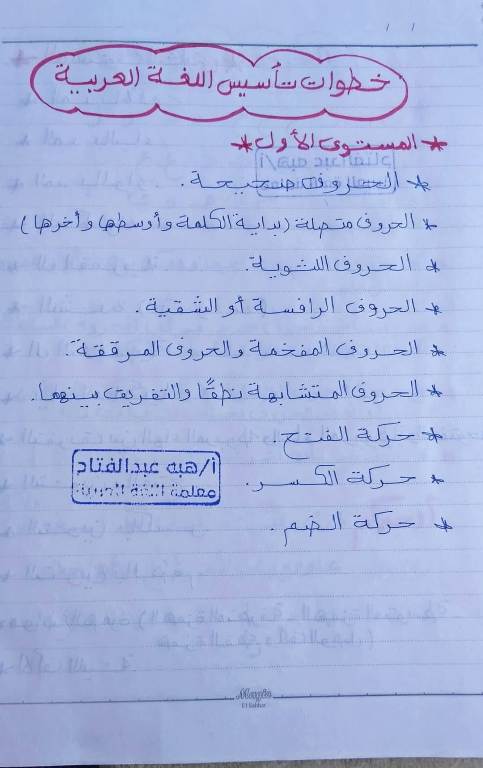 خطوات تأسيس اللغة العربية
* المستوى الأول *
* الحروف صحيحة.
* الحروف متصلة (بداية الكلمة وأوسطها وأخرها)
* الحروف اللثوية.
* الحروف الرافسة أو الشفية.
* الحروف المفخمة والحروف المرققة.
* الحروف المتشابهة نطقًا والتفريق بينهما.
* حركة الفتح.
أ/هبه عبدالفتاح
معلمة اللغة العربية
* حركة الكسر.
* حركة الضم.
El Sakkar